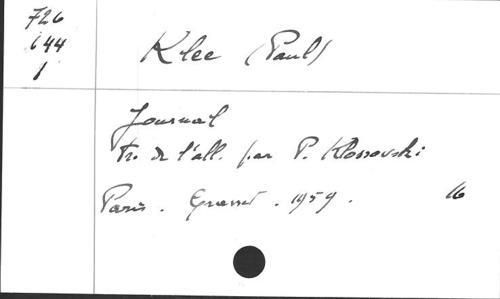 726
644
1
Klee (Paul)
Journal
tr. de l'all. par P. Klossovski
Paris. Grasset. 1959. 16